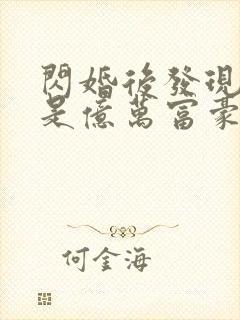 閃婚後發現
是億萬富豪
何金海